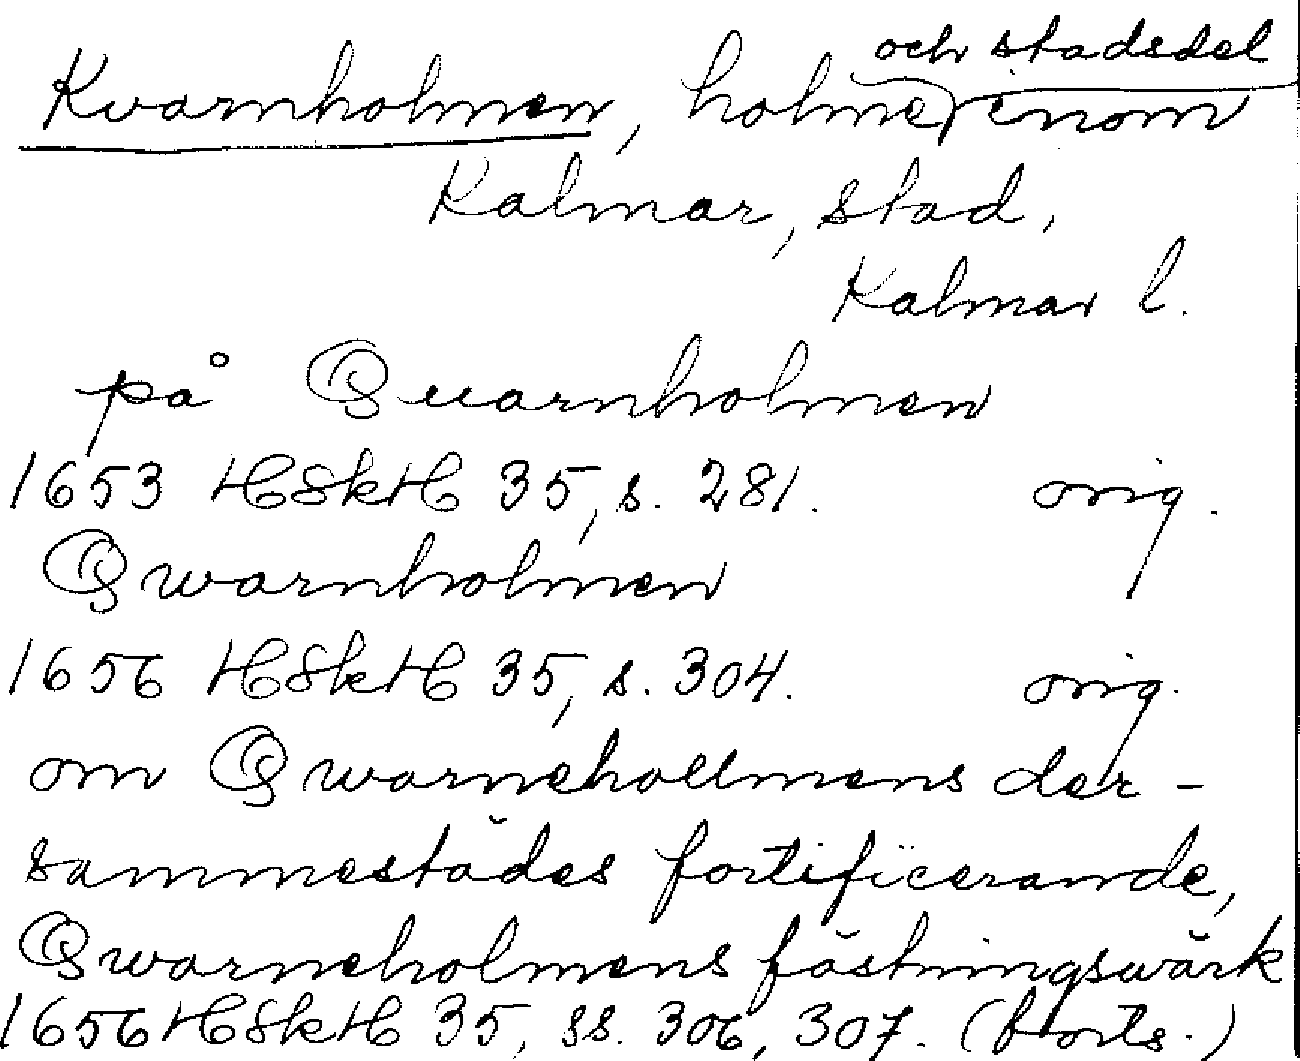 och stadsdel
Kvarnholmen, holme, inom
Kalmar, stad,
Kalmar l.
på Quarnholmen
1653 HSkH 35, s. 281. orig.
Qwarnholmen
1656 HSkH 35, s. 304. orig.
om Qwarnehollmens der-
sammestädes fortificerande,
Qwarneholmens fästningswärk
1656 HSkH 35, ss. 306, 307. (forts.)